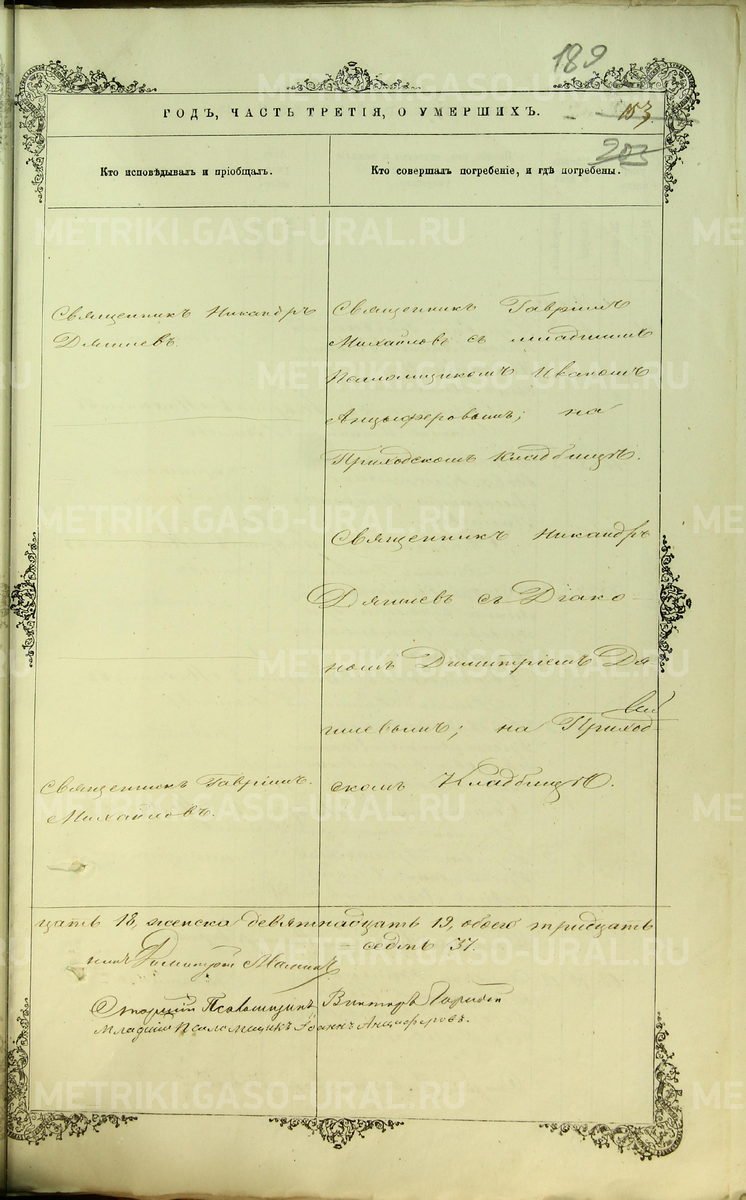 189
ГОДЪ, ЧАСТЬ ТРЕТІЯ, О УМЕРШИХЪ.
153
203
Кто исповѣдывалъ и пріобщалъ.
Кто совершалъ погребеніе, и гдѣ погребены.
Священникъ Никандръ
Священникъ Гавріилъ
Михайловъ съ младшимъ
Псаломщикомъ Иваномъ
Анцыферовымъ; на
Приходскомъ Кладбищѣ.
Священникъ Никандръ
съ Діако-
номъ Димитріемъ
на Приход-
скомъ Кладбищѣ.
Священникъ Гавріилъ
Михайловъ.
цать 18, женска девятнадцать 19, обоего тридцать
седмь 37.
Старшій Псаломщикъ Викторъ
Младшій Псаломщикъ Іоаннъ Анцыферовъ.
METRIKI.GASO-URAL.RU